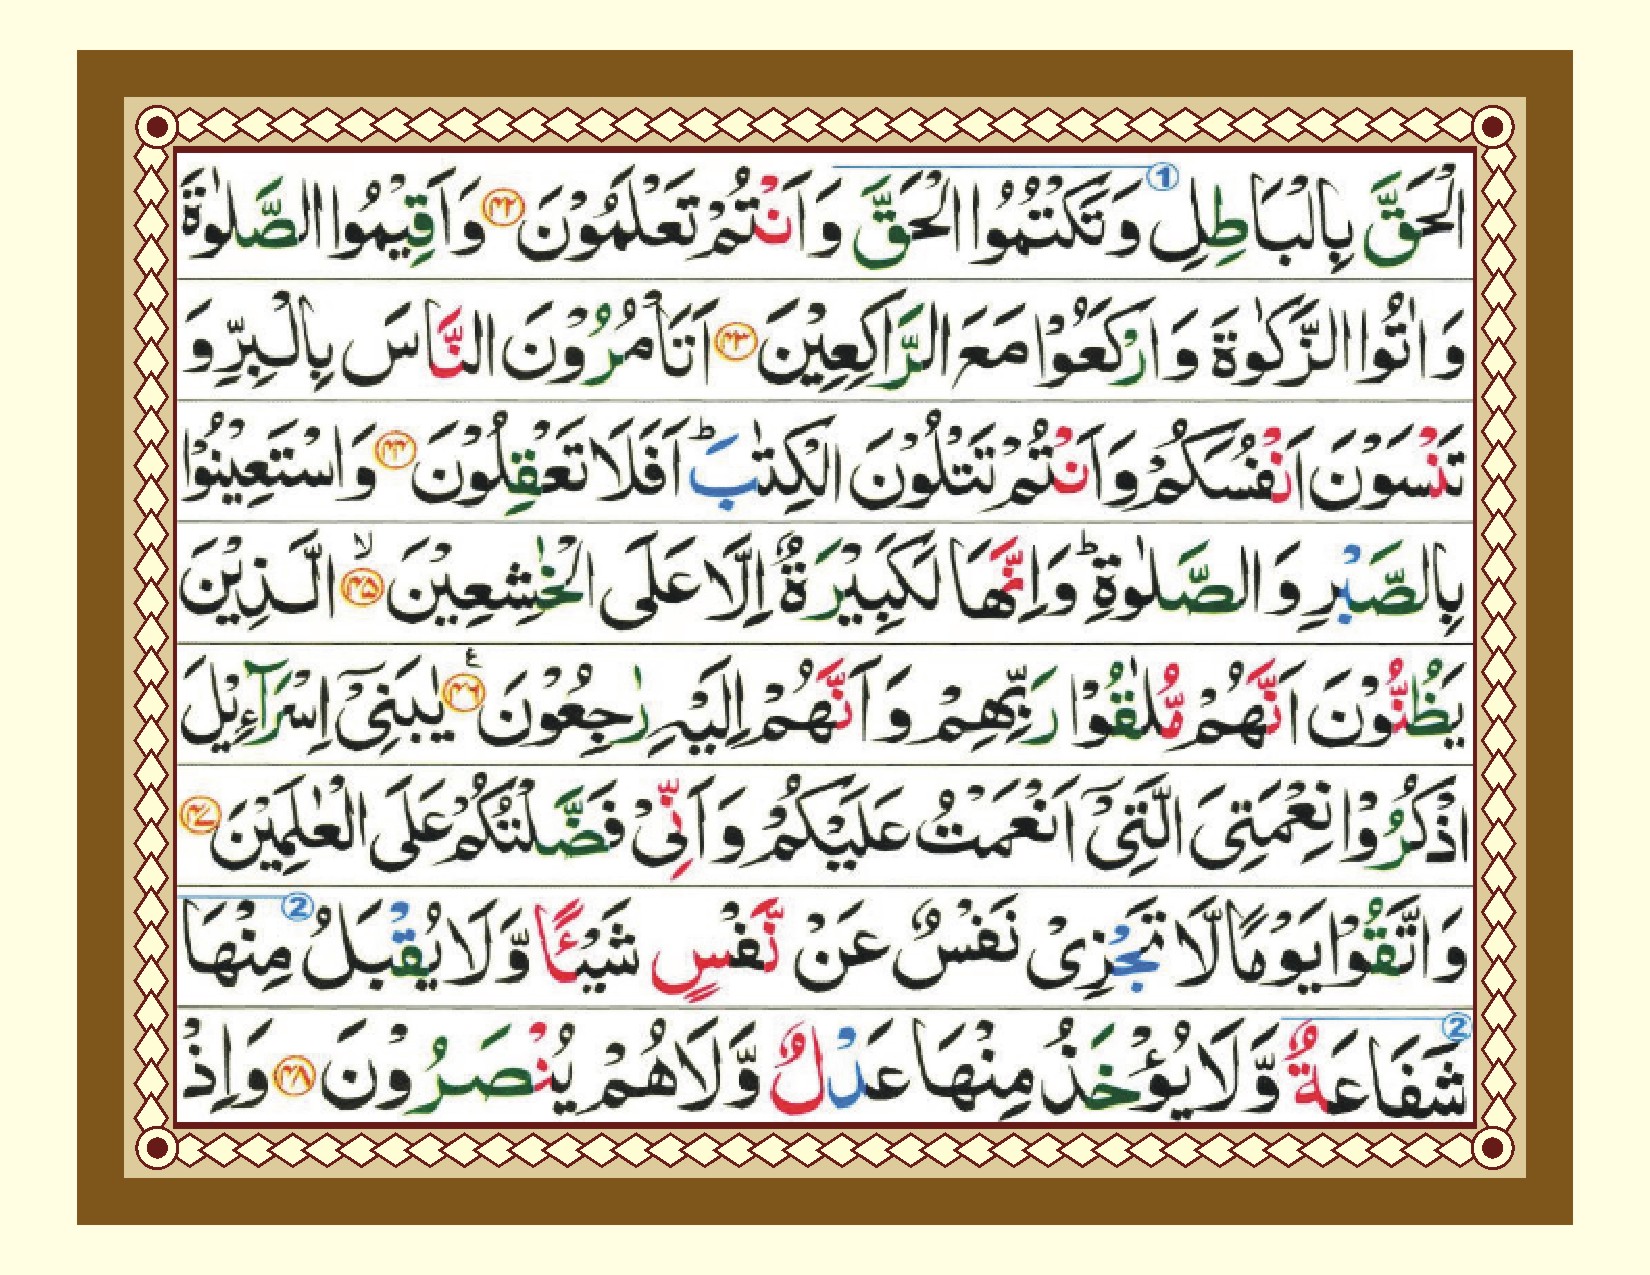 الْحَقَّ بِالْبَاطِلِ ① وَتَكْتُمُوا الْحَقَّ وَاَنْتُمْ تَعْلَمُوْنَ ۴۲ وَاَقِيْمُوا الصَّلٰوةَ
وَاٰتُوا الزَّكٰوةَ وَارْكَعُوْا مَعَ الرَّاكِعِيْنَ ۴۳ اَتَاْمُرُوْنَ النَّاسَ بِالْبِرِّ وَ
تَنْسَوْنَ اَنْفُسَكُمْ وَاَنْتُمْ تَتْلُوْنَ الْكِتٰبَ ؕ اَفَلَا تَعْقِلُوْنَ ۴۴ وَاسْتَعِيْنُوْا
بِالصَّبْرِ وَالصَّلٰوةِ ؕ وَاِنَّهَا لَكَبِيْرَةٌ اِلَّا عَلَى الْخٰشِعِيْنَ ۴۵ ۙ الَّذِيْنَ
يَظُنُّوْنَ اَنَّهُمْ مُّلٰقُوْا رَبِّهِمْ وَاَنَّهُمْ اِلَيْهِ رٰجِعُوْنَ ۴۶ ع يٰبَنِىْٓ اِسْرَآءِيْلَ
اذْكُرُوْا نِعْمَتِىَ الَّتِىْٓ اَنْعَمْتُ عَلَيْكُمْ وَاَنِّىْ فَضَّلْتُكُمْ عَلَى الْعٰلَمِيْنَ ۴۷
وَاتَّقُوْا يَوْمًا لَّا تَجْزِىْ نَفْسٌ عَنْ نَّفْسٍ شَيْـًٔا وَّلَا يُقْبَلُ ② مِنْهَا
② شَفَاعَةٌ وَّلَا يُؤْخَذُ مِنْهَا عَدْلٌ وَّلَا هُمْ يُنْصَرُوْنَ ۴۸ وَاِذْ